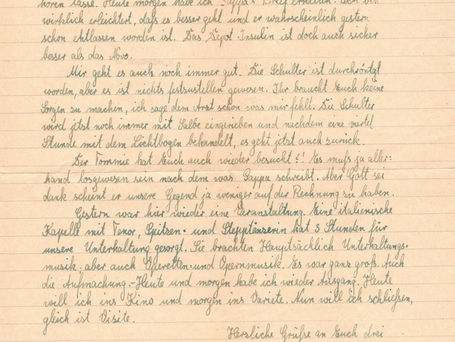 hören lasse. Heute morgen habe ich Pappa's Brief erhalten. Ich bin
wirklich erleichtert, daß es besser geht und er wahrscheinlich gestern
schon entlassen worden ist. Das Depot Insulin ist doch auch sicher
besser als das Novo.
Mir geht es auch noch immer gut. Die Schulter ist durchröntgt
worden, aber es ist nichts festzustellen gewesen. Ihr braucht Euch keine
Sorgen zu machen, ich sage dem Arzt schon was mir fehlt. Die Schulter
wird jetzt noch immer mit Salbe eingerieben und nachdem eine viertel
Stunde mit dem Lichtbogen behandelt, es geht jetzt auch zurück.
Der Tommie hat Euch auch wieder besucht! Es muß ja aller-
hand losgewesen sein nach dem was Pappa schreibt. Aber Gott sei
dank scheint er unsere Gegend ja weniger auf der Rechnung zu haben.
Gestern war hier wieder eine Veranstaltung. Eine italienische
Kapelle mit Tenor, Spitzen- und Stepptänzerin hat 3 Stunden für
unsere Unterhaltung gesorgt. Sie brachten Hauptsächlich Unterhaltungs-
musik, aber auch Operetten- und Opernmusik. Es war ganz groß. Auch
die Aufmachung. Heute und morgen habe ich wieder Ausgang. Heute
will ich ins Kino und morgen ins Variete. Nun will ich schließen,
gleich ist Visite.
Herzliche Grüße an Euch drei